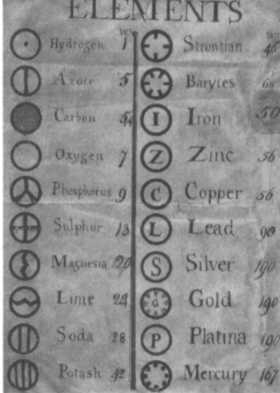 ELEMENTS
Hydrogen 1
Azote 5
Carbon 5
Oxygen 7
Phosphorus 9
Sulphur 13
Magnesia 20
Lime 24
Soda 28
Potash 42
Strontian 46
Barytes 68
I Iron 50
Z Zinc 56
C Copper 56
L Lead 90
S Silver 190
G Gold 190
P Platina 190
Mercury 167